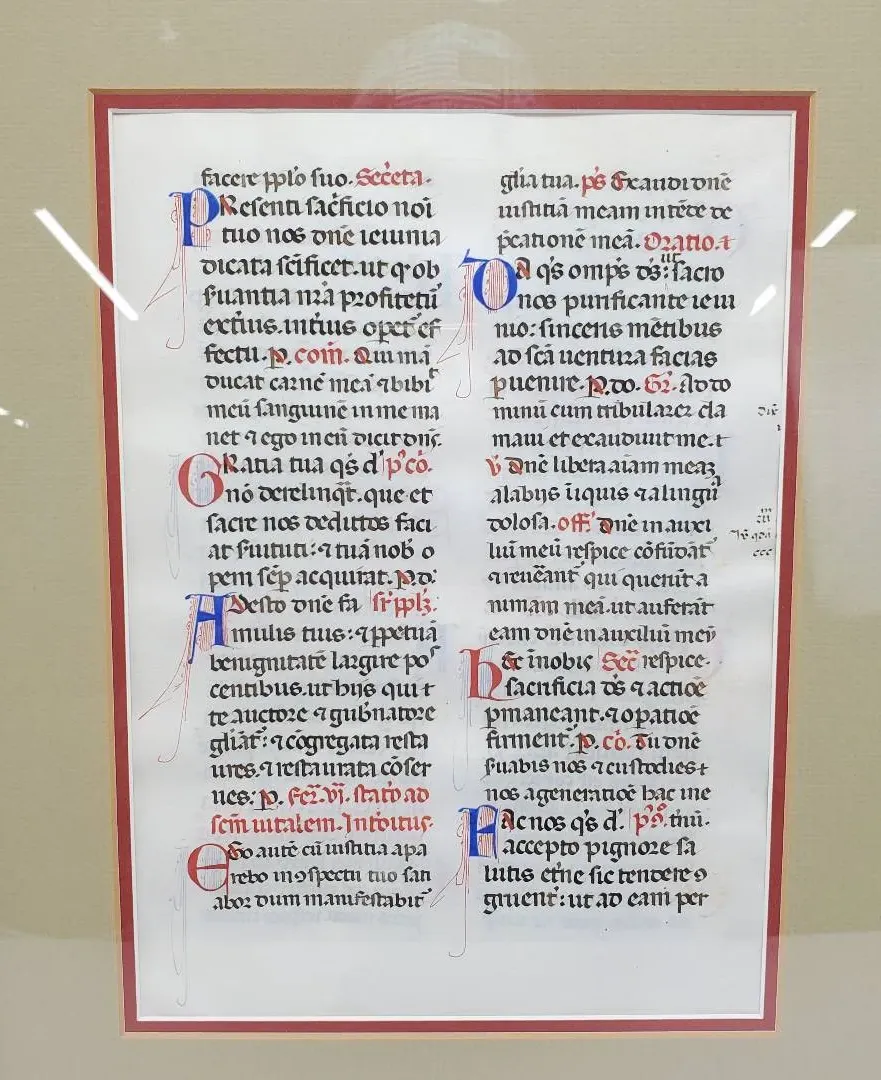 facere pplo suo. Secreta.
PResenti sacficio noi
tuo nos dne ieiunia
dicata scificet. ut qr ob
suantia nra profitetu
exrius. intius opet ef
fectu. P. com. Qui ma
ducat carne mea ⁊ bibit
meu sanguine in me ma
net ⁊ ego in eu dicit dns.
GRatia tua qs d p̄co.
no derelinqt. que et
sacre nos deditos faci
at suituti: ⁊ tua nob o
pem sep acquirat. P. d:
ADesto dne fa sr pplm.
mulis tuis: ⁊ ppetua
benignitate largire pos
centibus. ut hijs qui t
te auctore ⁊ gubnatore
gliat: ⁊ cogregata resta
ures. ⁊ restaurata coser
ues: P. Fer. vi. stato ad
scm uitalem. Introitus.
EGo aute cu iustitia apa
rebo in ꝯspectu tuo sati
abor dum manifestabit
glia tua. ps Exaudi dne
iustitia meam intede de
pcatione mea. Oratio.
DA qs omps ds: ut sacro
nos purificante ieiu
nio: sinceris metibus
ad sca uentura facias
puenire. P. do. Gr. Ad do
minu cum tribularer cla
maui et exaudiuit me. t
v Dne libera aiam meaz
a labijs iiquis ⁊ a lingu
dolosa. off. Dne in auxi
liu meu respice cofudat
⁊ reueant qui querut a
nimam mea. ut auferat
eam dne in auxiliu meu
hEc i nobis Sec respice.
sacrificia ds ⁊ actioe
pmaneant. ⁊ opatioe
firment. P. co. Tu dne
suabis nos ⁊ custodies
nos a generatioe hac i ne
FAc nos qs d. p̄o. tnu.
accepto pignore sa
lutis etne sic tendere ꝯ
gruent: ut ad eam per